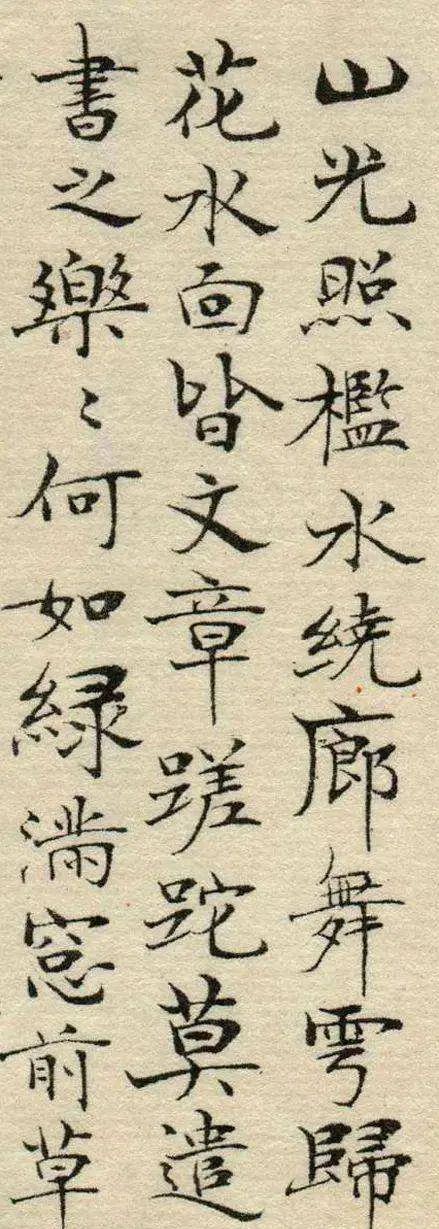 山光照檻水繞廊舞雩歸
花水面皆文章蹉跎莫遣
書之樂〻何如綠滿窓前草